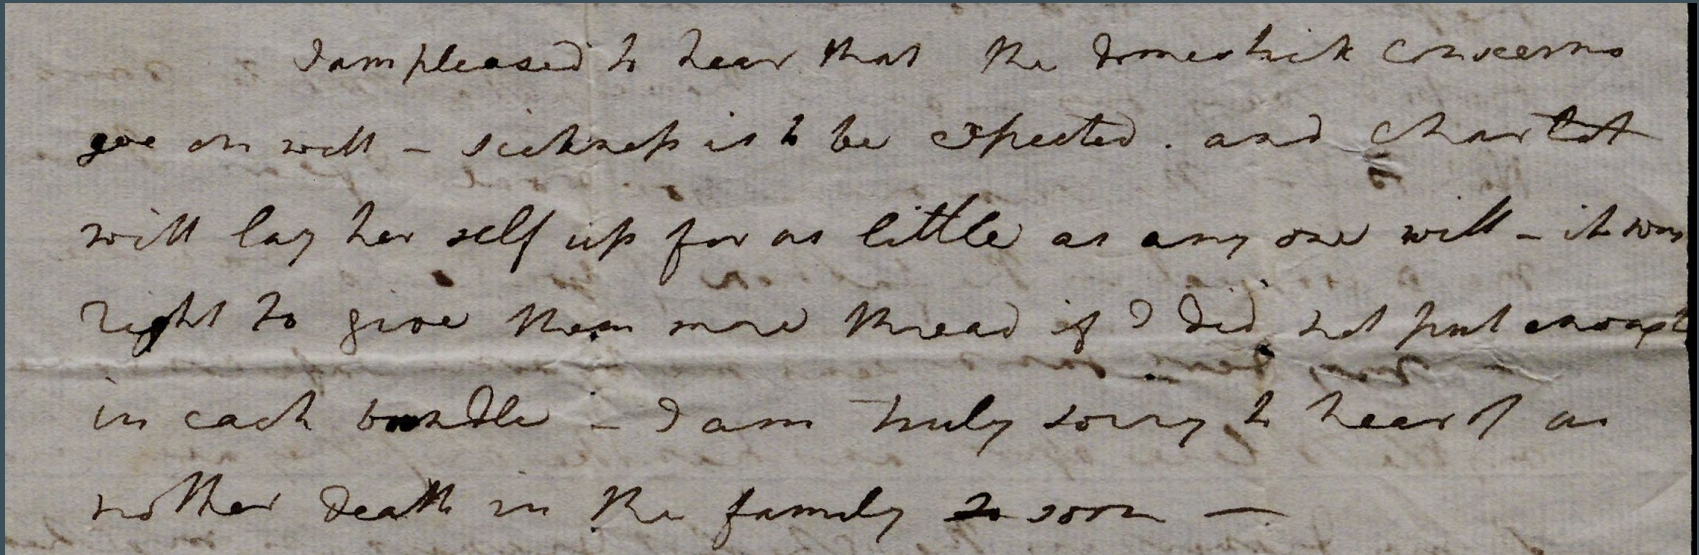 I am pleased to hear that the domestick concerns
goe on well – sickness is to be expected. and Charlot
will lay her self up for as little as any one will – it was
right to give them more thread if I did not put enough
in each bundle – I am truly sorry to hear of an
nother death in the family so soon —